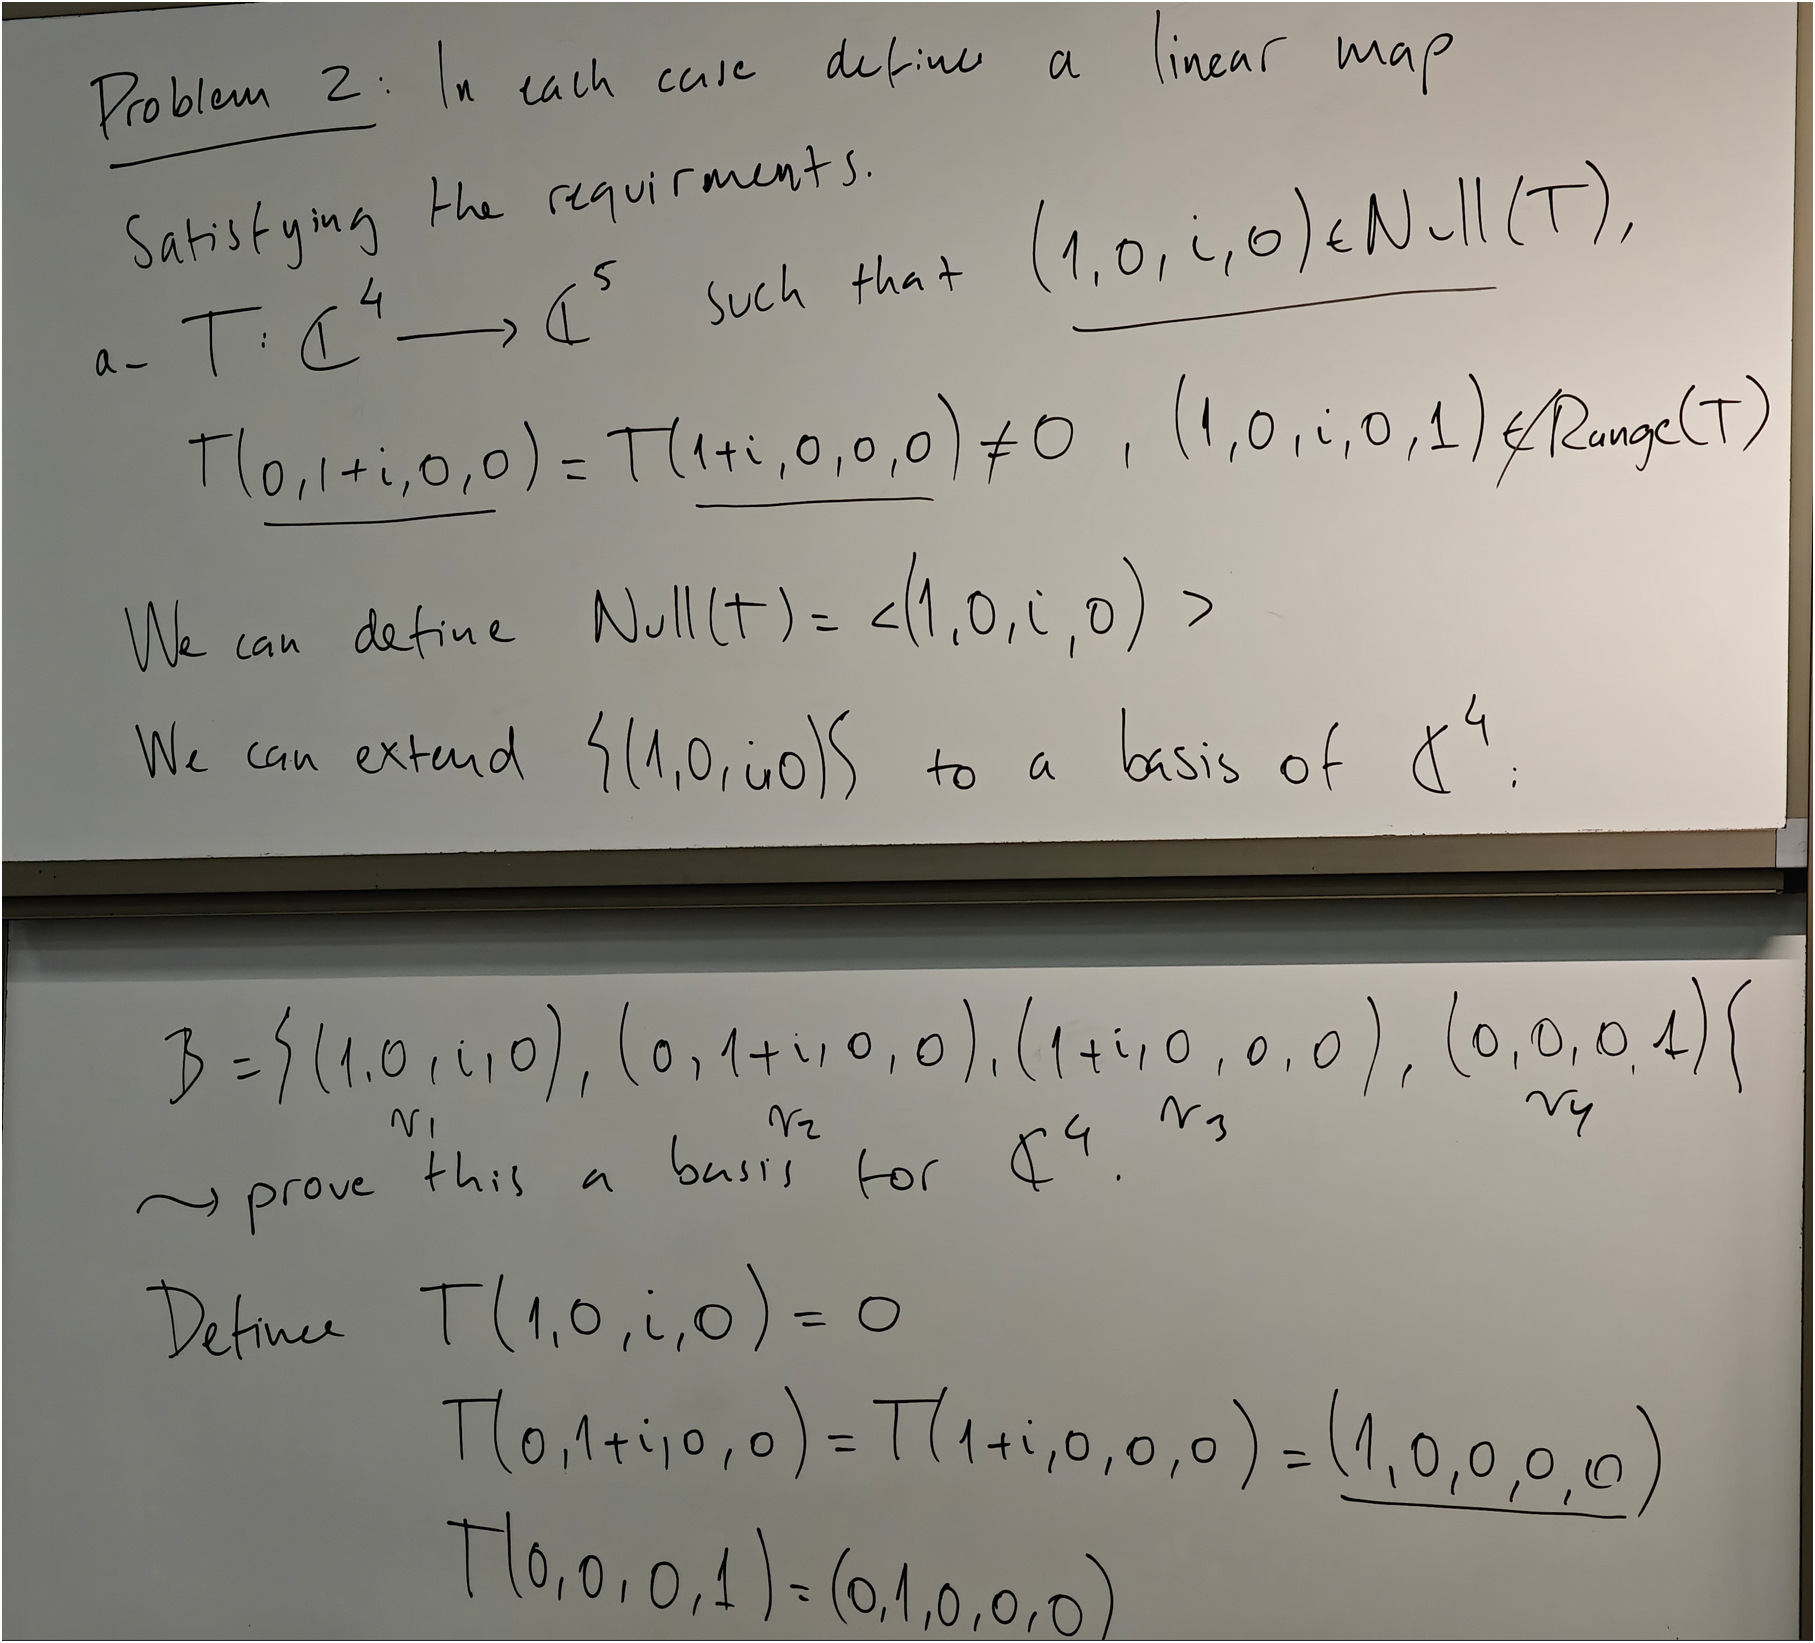 Problem 2: In each case define a linear map
Satisfying the requirments.
a- T: ℂ⁴ ⟶ ℂ⁵ such that (1,0,i,0) ∈ Null(T),
T(0,1+i,0,0) = T(1+i,0,0,0) ≠ 0 , (1,0,i,0,1) ∉ Range(T)
We can define Null(T) = <(1,0,i,0)>
We can extend {(1,0,i,0)} to a basis of ℂ⁴:
B = {(1,0,i,0), (0,1+i,0,0), (1+i,0,0,0), (0,0,0,1)}
v₁ v₂ v₃ v₄
⇝ prove this a basis for ℂ⁴.
Define T(1,0,i,0) = 0
T(0,1+i,0,0) = T(1+i,0,0,0) = (1,0,0,0,0)
T(0,0,0,1) = (0,1,0,0,0)